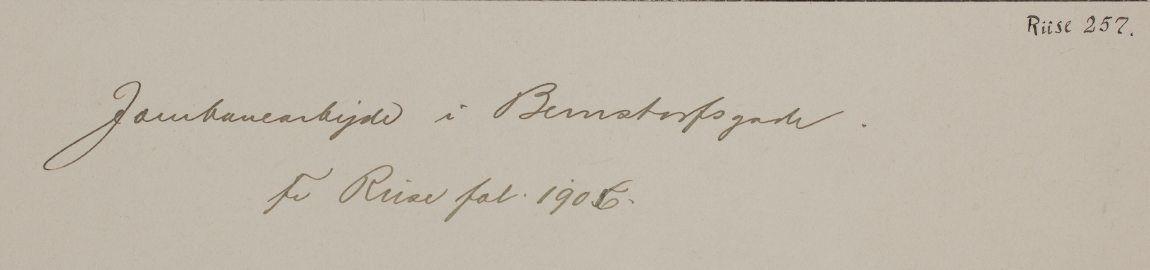 Riise 257.
Jernbanearbejde i Bernstorfsgade.
Fr Riise fot. 1906.